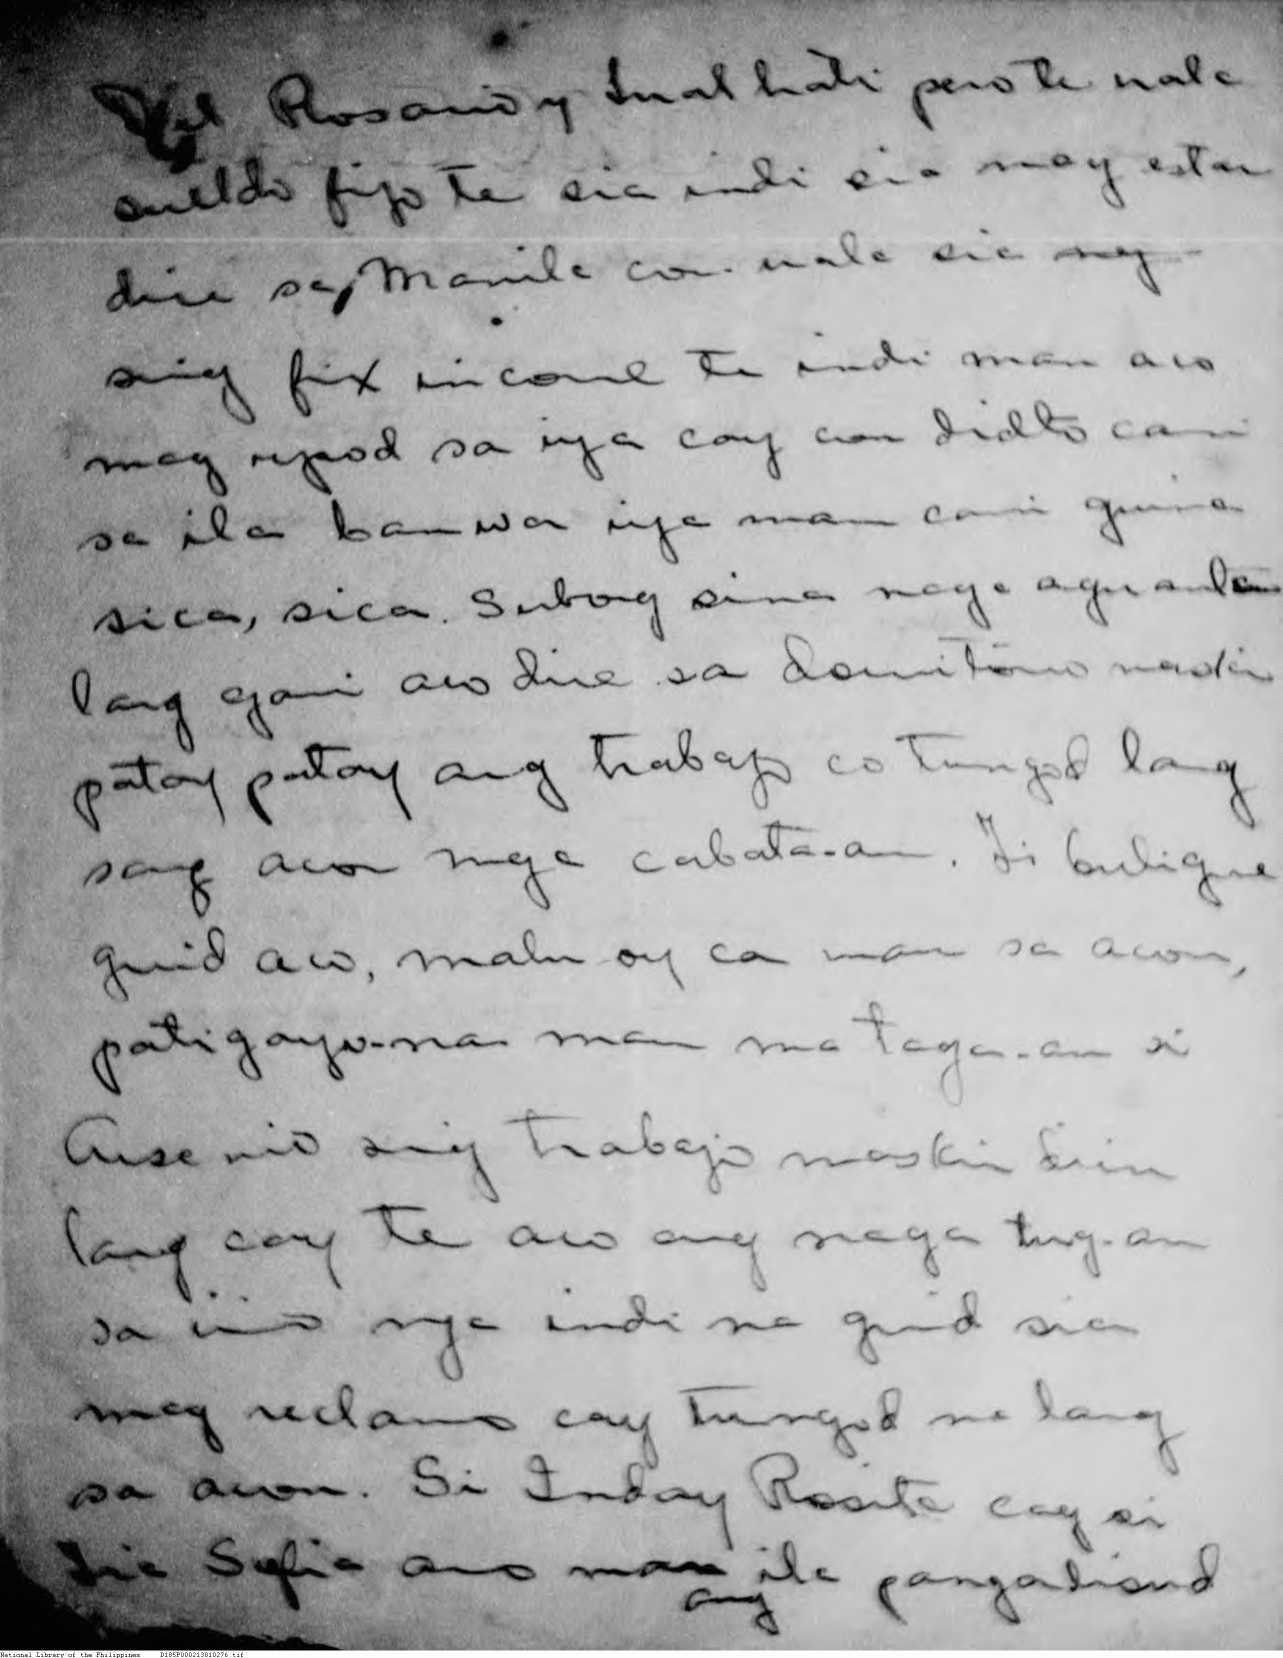 del Rosario y Inalhati pero te uala
sueldo fijo te sia indi sia mag estar
diri sa, Manila con uala sia ng
sing fix income te indi man aco
mag upod sa iya cay con didto cami
sa ila banwa iya man cami guina
sica, sica. Subong sina naga aguanta
lang gani aco diri sa dormitorio maskin
patay patay ang trabajo co tungod lang
sang acon mga cabata-an. Ti buligue
guid aco, malu-oy ca man sa acon,
patigayo-na man ma taga-an si
Arsenio sing trabajo maskin diin
lang cay te aco ang naga tug-an
sa iño nga indi na guid sia
mag reclamo cay tungod na lang
sa acon. Si Inday Rosita cag si
Tia Sofia ano man ang ila pangabisud
National Library of the Philippines D185P000213810276.tif